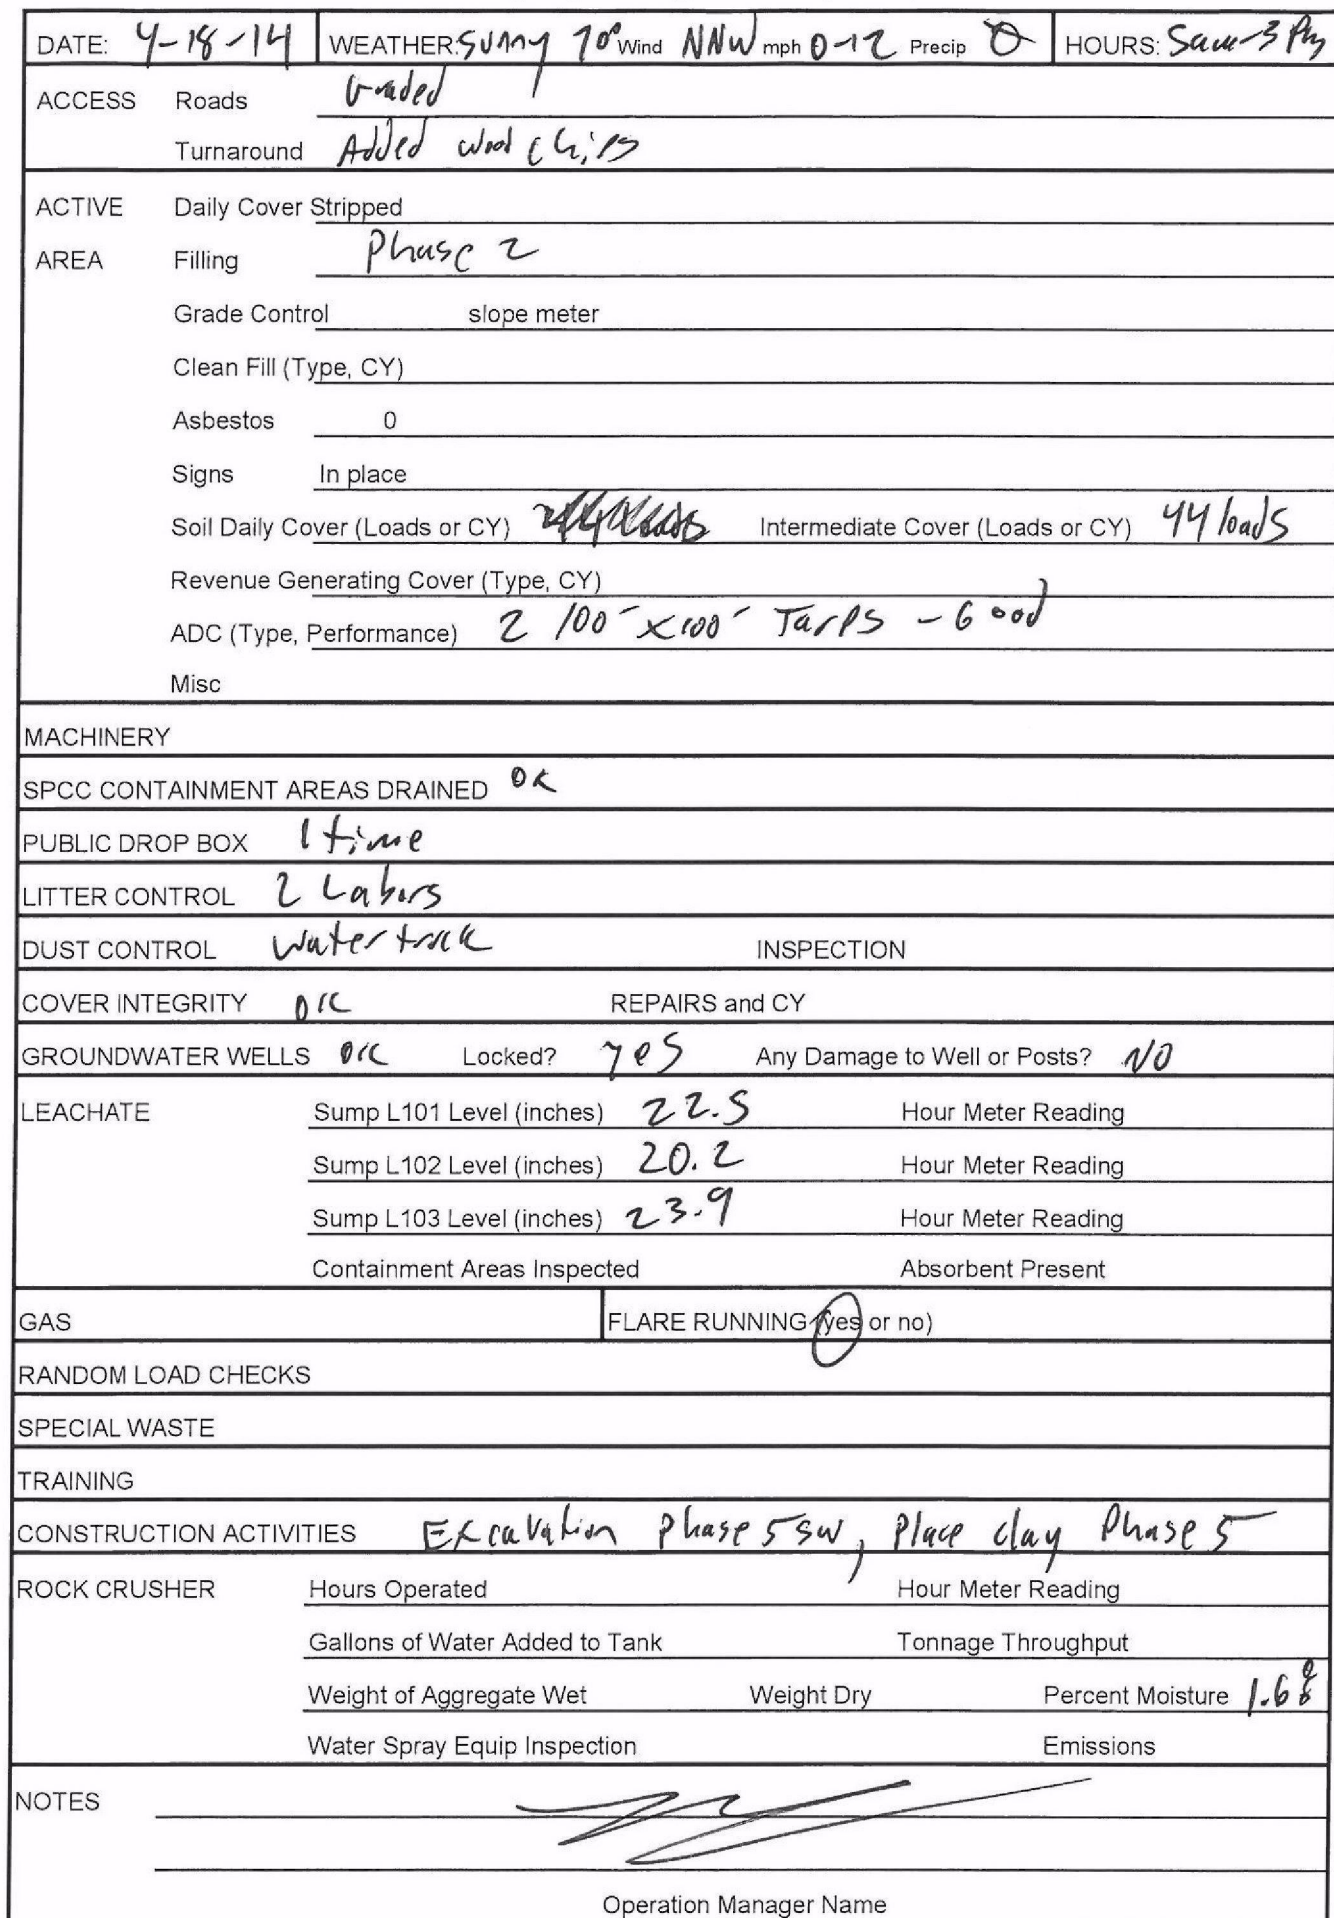 DATE: 4-18-14 WEATHER: Sunny 70° Wind NNW mph 0-12 Precip 0 HOURS: 5am-3pm
ACCESS Roads Graded
Turnaround Added wood chips
ACTIVE Daily Cover Stripped
AREA Filling Phase 2
Grade Control slope meter
Clean Fill (Type, CY)
Asbestos 0
Signs In place
Soil Daily Cover (Loads or CY) Intermediate Cover (Loads or CY) 44 loads
Revenue Generating Cover (Type, CY)
ADC (Type, Performance) 2 100' x 100' Tarps - Good
Misc
MACHINERY
SPCC CONTAINMENT AREAS DRAINED OK
PUBLIC DROP BOX 1 time
LITTER CONTROL 2 Labors
DUST CONTROL Water truck INSPECTION
COVER INTEGRITY OK REPAIRS and CY
GROUNDWATER WELLS OK Locked? yes Any Damage to Well or Posts? NO
LEACHATE Sump L101 Level (inches) 22.5 Hour Meter Reading
Sump L102 Level (inches) 20.2 Hour Meter Reading
Sump L103 Level (inches) 23.9 Hour Meter Reading
Containment Areas Inspected Absorbent Present
GAS FLARE RUNNING (yes or no)
RANDOM LOAD CHECKS
SPECIAL WASTE
TRAINING
CONSTRUCTION ACTIVITIES Excavation Phase 5 SW, Place clay Phase 5
ROCK CRUSHER Hours Operated Hour Meter Reading
Gallons of Water Added to Tank Tonnage Throughput
Weight of Aggregate Wet Weight Dry Percent Moisture 1.6%
Water Spray Equip Inspection Emissions
NOTES
Operation Manager Name